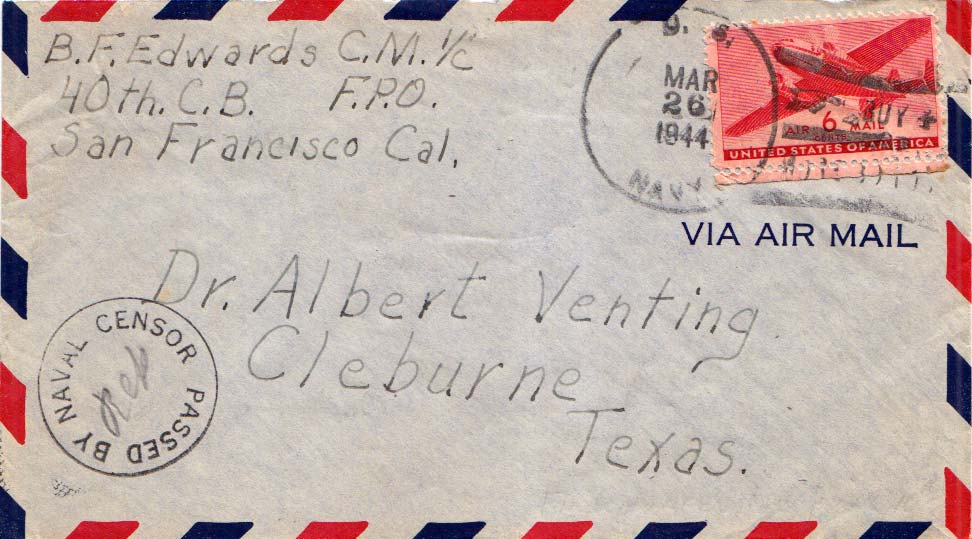 B.F. Edwards C.M. 1/c
40th. C.B. F.P.O.
San Francisco Cal.
U. S.
MAR
26
1944
NAVY
6
AIR MAIL
CENTS
UNITED STATES OF AMERICA
BUY
VIA AIR MAIL
Dr. Albert Venting
Cleburne
Texas.
PASSED BY NAVAL CENSOR